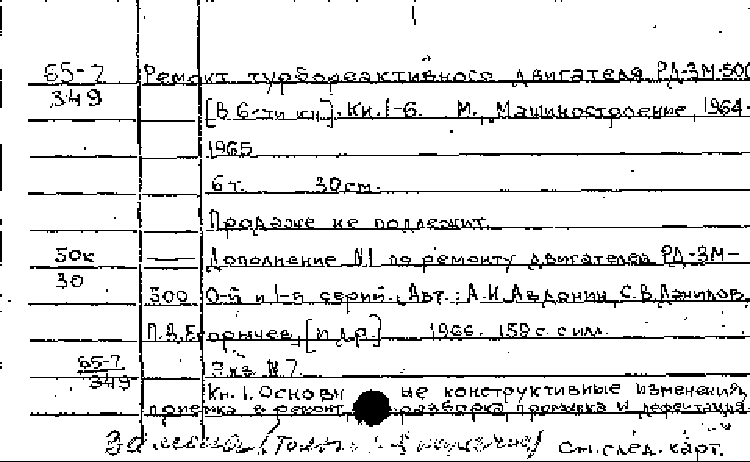 65-7 Ремонт турбореактивного двигателя РД-3М-500
349 [В 6-ти кн]. Кн. 1-6. М., Машиностроение, 1964-
1965
6 т. 30 см.
Продаже не подлежит.
50к — Дополнение №1 по ремонту двигателей РД-3М-
30
500 0-й и 1-й серий. Авт.: А.И. Авдонин, С.В. Данилов,
П.В. Егорычев, [и др.] 1966. 158 с. с илл.
65-7 Экз. №7.
349 Кн. 1. Основные конструктивные изменения,
приемка в ремонт, разборка, промывка и дефектация.
См. след. карт.